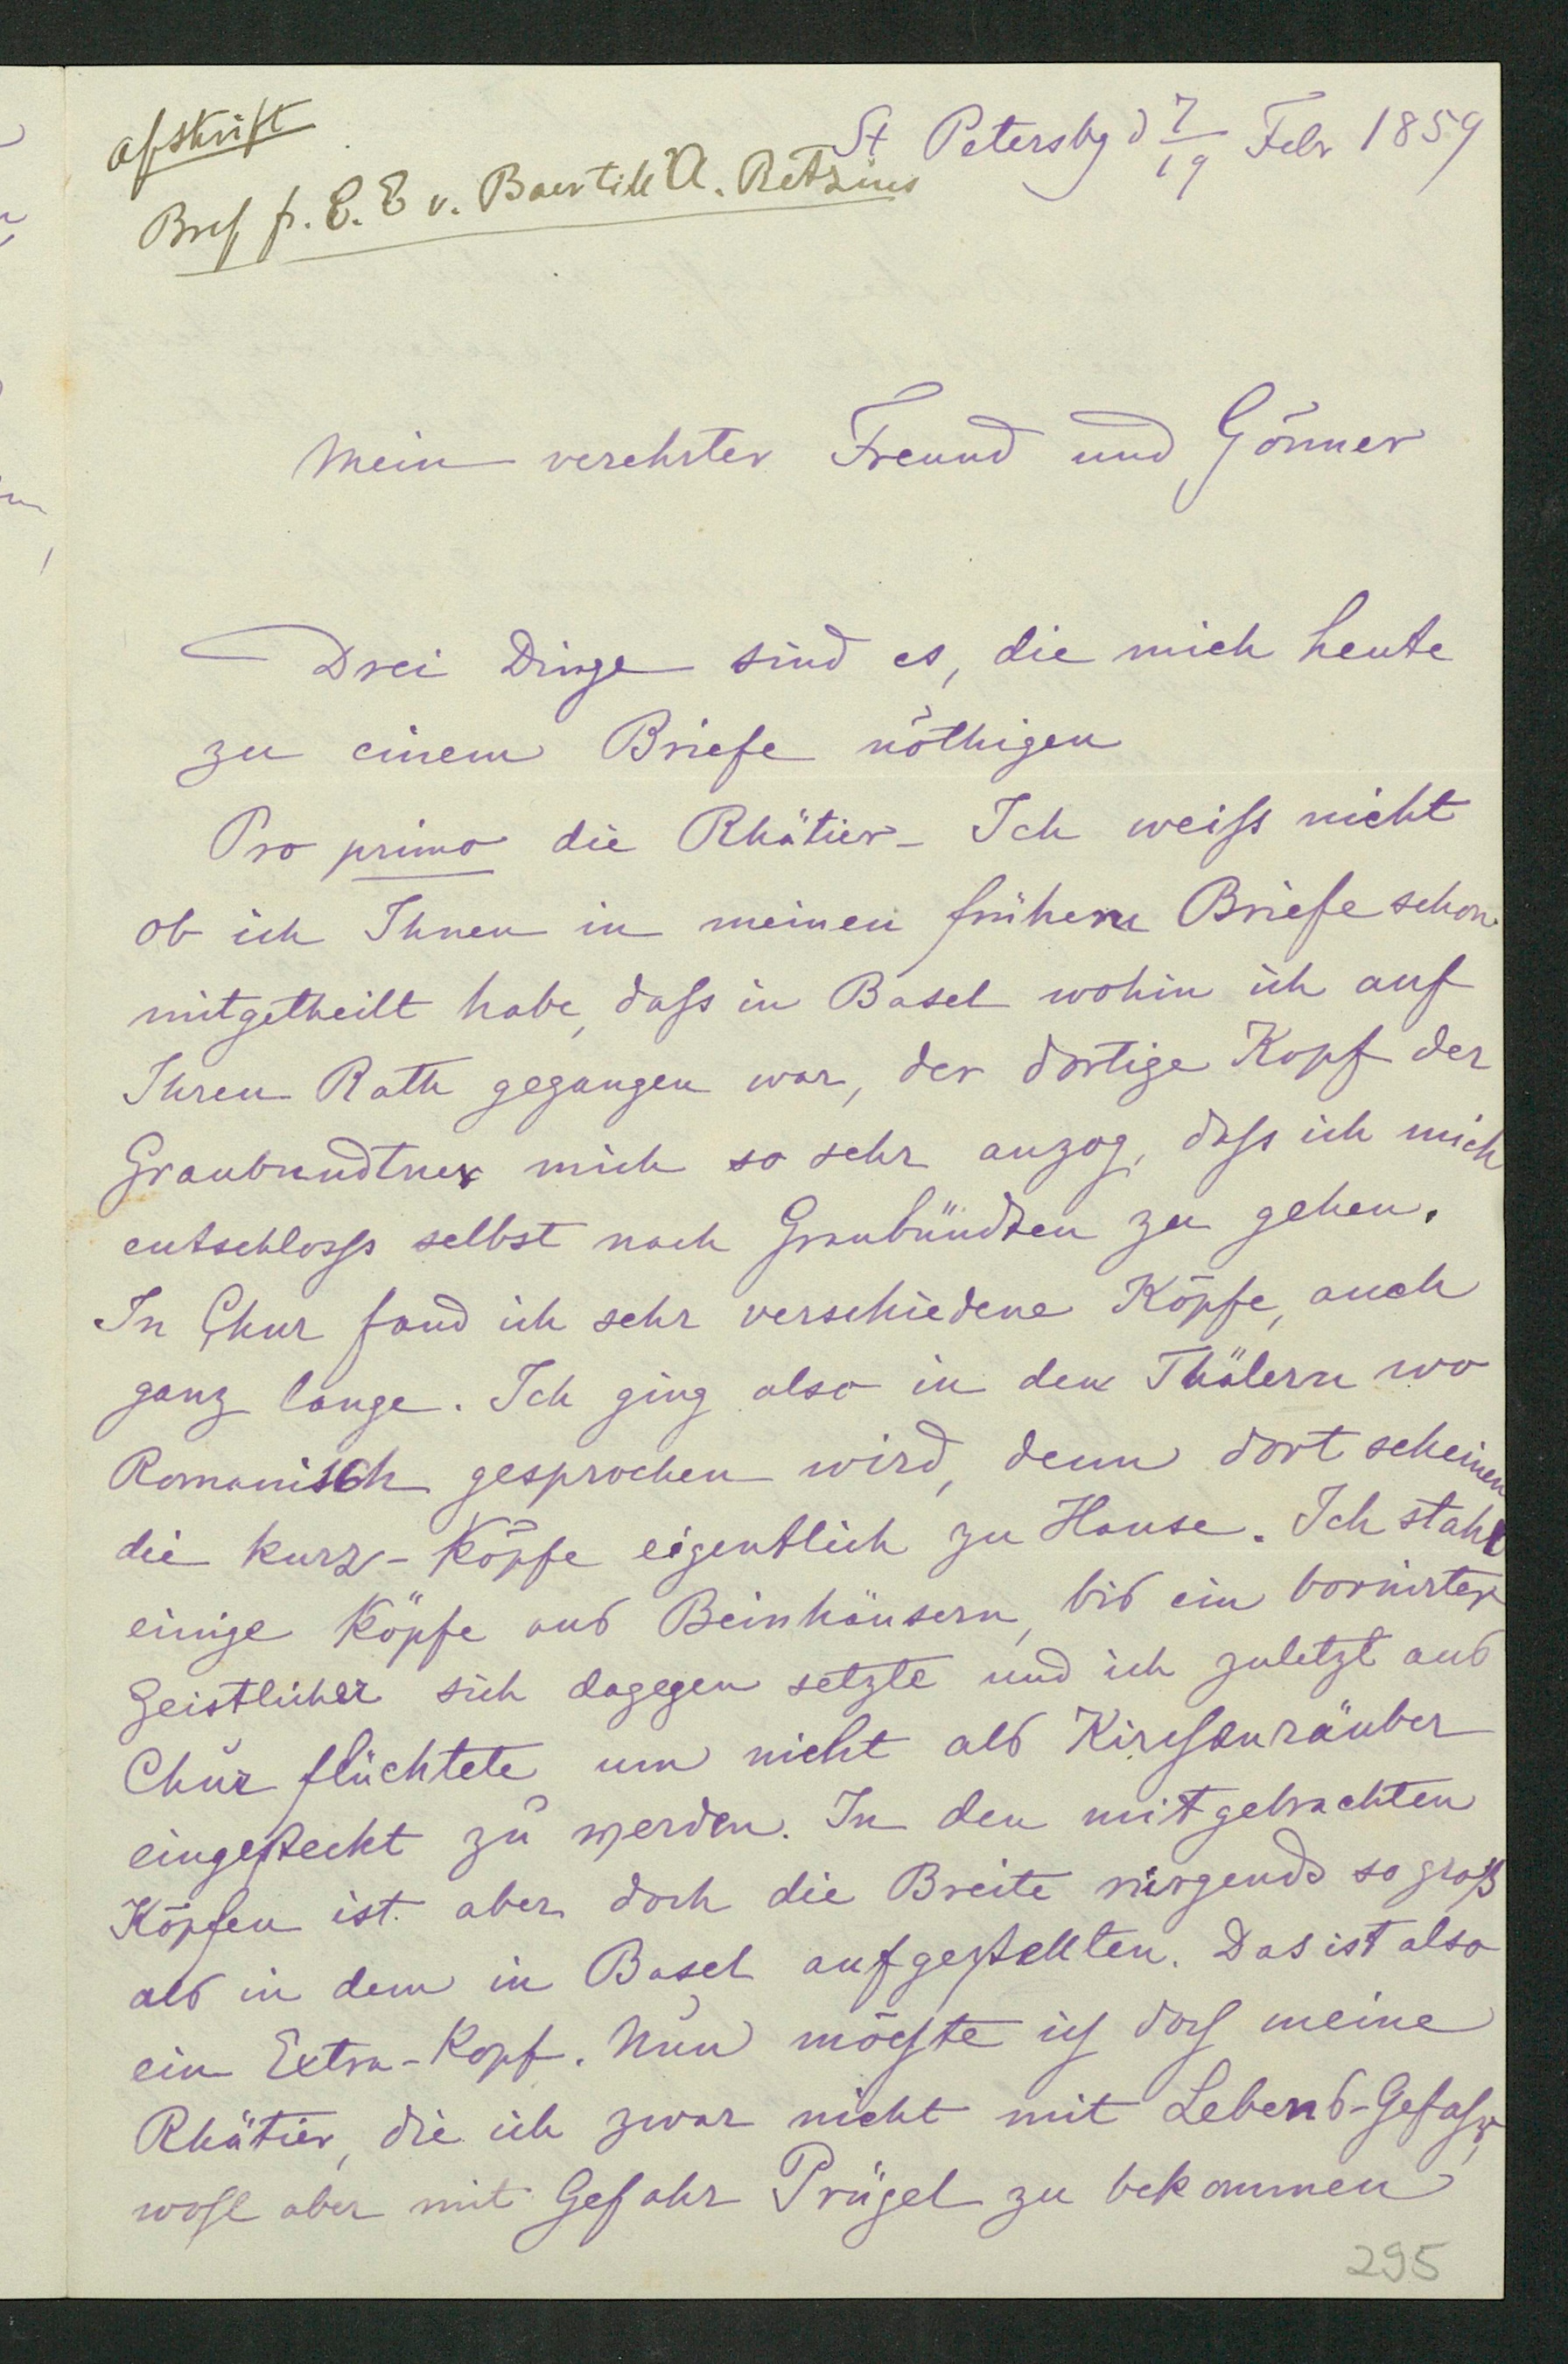 afskrift
Bref fr. C. E v. Baer till A. Retzius
St Petersbg d 7/19 Febr 1859
Mein verehrter Freund und Gönner
Drei Dinge sind es, die mich heute
zu einem Briefe nöthigen
Pro primo die Rhätier_ Ich weiss nicht
ob ich Ihnen in meinen frühern Briefe schon
mitgetheilt habe, dass in Basel wohin ich auf
Ihren Rath gegangen war, der dortige Kopf der
Graubundtner mich so sehr anzog, dass ich mich
entschloss selbst nach Graubündten zu gehen.
In Chur fand ich sehr verschiedene Köpfe, auch
ganz lange. Ich ging also in den Thälern wo
Romanisch gesprochen wird, denn dort scheinen
die kurz-Köpfe eigentlich zu Hause. Ich stahl
einige Köpfe aus Beinhäusern, bis ein bornirter
Geistlicher sich dagegen setzte und ich zuletzt aus
Chur flüchtete um nicht als Kirchenräuber
eingesteckt zu werden. In den mitgebrachten
Köpfen ist aber doch die Breite nirgends so gross
als in dem in Basel aufgestellten. Das ist also
ein Extra-Kopf. Nun möchte ich doch meine
Rhätier, die ich zwar nicht mit Lebens-Gefahr,
wohl aber mit Gefahr Prügel zu bekommen
295